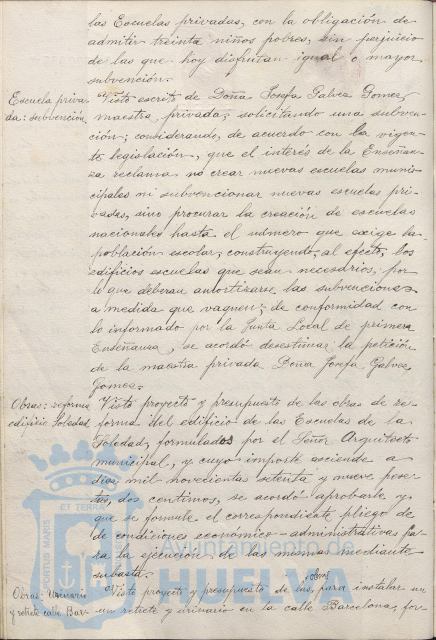 las Escuelas privadas, con la obligación de
admitir treinta niños pobres, sin perjuicio
de las que hoy disfrutan igual o mayor
subvención.
Escuela priva-
da: subvención.
Visto escrito de Doña Josefa Galvez Gomez,
maestra privada, solicitando una subven-
ción; considerando, de acuerdo con la vigen-
te legislación, que el interés de la Enseñan-
za reclama no crear nuevas escuelas muni-
cipales ni subvencionar nuevas escuelas pri-
vadas, sino procurar la creación de escuelas
nacionales hasta el número que exige la
población escolar, construyendo, al efecto, los
edificios escuelas que sean necesarios, por
lo que deberán amortizarse las subvenciones
a medida que vaquen; de conformidad con
lo informado por la Junta Local de primera
Enseñanza, se acordó desestimar la petición
de la maestra privada Doña Josefa Galvez
Gomez.
Obras: reforma
edificio Soledad
Visto proyecto y presupuesto de las obras de re-
forma del edificio de las Escuelas de la
Soledad, formulados por el Señor Arquitecto
municipal, y cuyo importe asciende a
diez mil novecientas setenta y nueve pese-
tas, dos centimos, se acordó aprobarlo y
que se formule el correspondiente pliego de
de condiciones económico-administrativas pa-
ra la ejecución de las mismas mediante
subasta.
Obras: Urinario
y retrete calle Bar-
Visto proyecto y presupuesto de las obras para instalar un
un retrete y urinario en la calle Barcelona, for-
ET TERRÆ
PORTUS MARIS
Ayuntamiento de
HUELVA